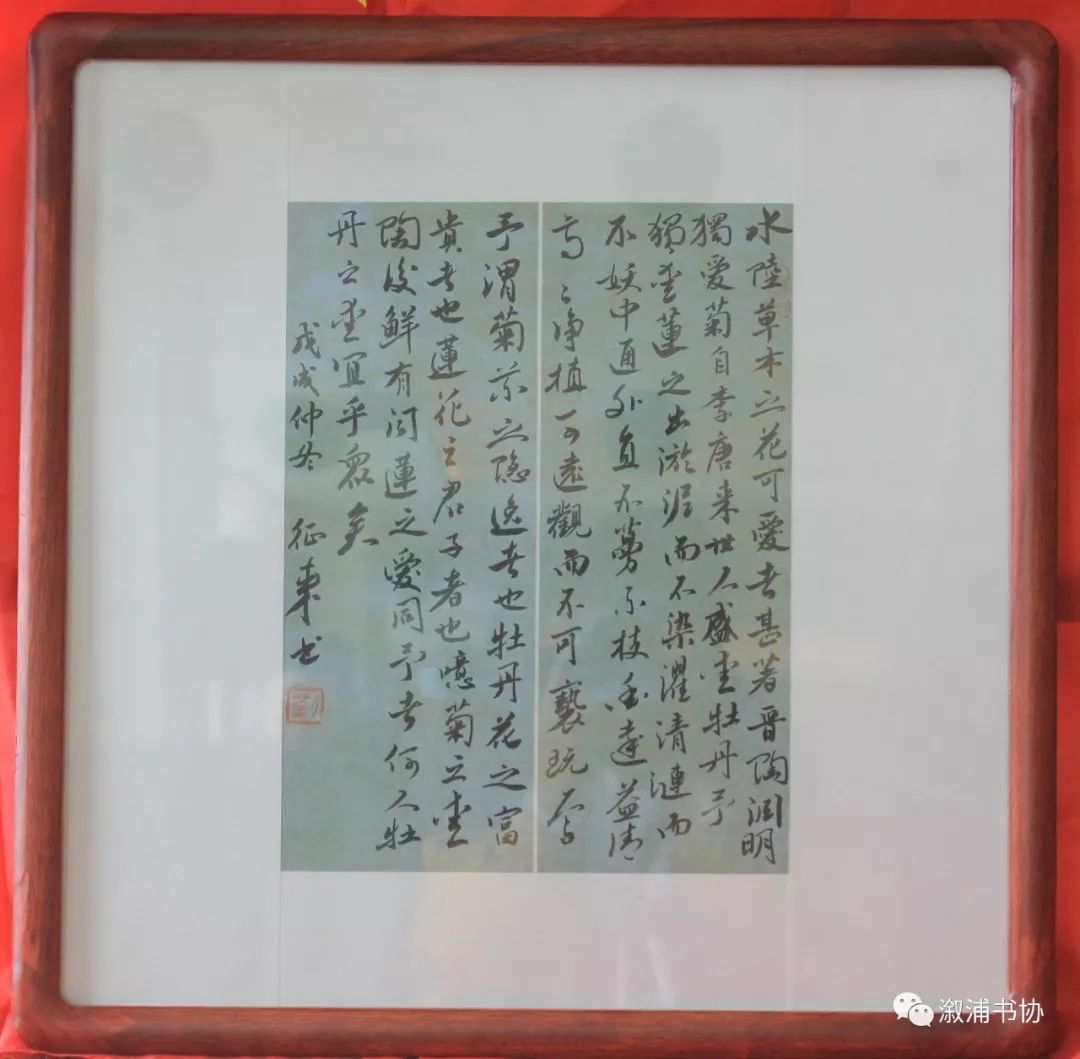 水陸草木之花可愛者甚著晋陶渊明
獨愛菊自李唐来世人盛愛牡丹予
獨愛蓮之出淤泥而不染濯清漣而
不妖中通外直不蔓不枝香遠益清
亭々净植可遠觀而不可褻玩焉
予謂菊花之隐逸者也牡丹花之富
貴者也蓮花之君子者也噫菊之愛
陶後鮮有闻蓮之愛同予者何人牡
丹之愛宜乎衆矣
戊戌仲冬 征東书
溆浦书协